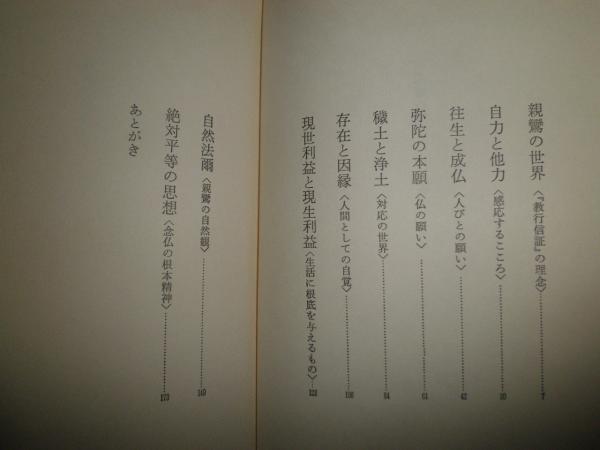 親鸞の世界〈『教行信証』の理念〉……7
自力と他力〈感応するこころ〉……20
往生と成仏〈人びとの願い〉……42
弥陀の本願〈仏の願い〉……61
穢土と浄土〈対応の世界〉……84
存在と因縁〈人間としての自覚〉……106
現世利益と現生利益〈生活に根底を与えるもの〉……123
自然法爾〈親鸞の自然観〉……149
絶対平等の思想〈念仏の根本精神〉……173
あとがき